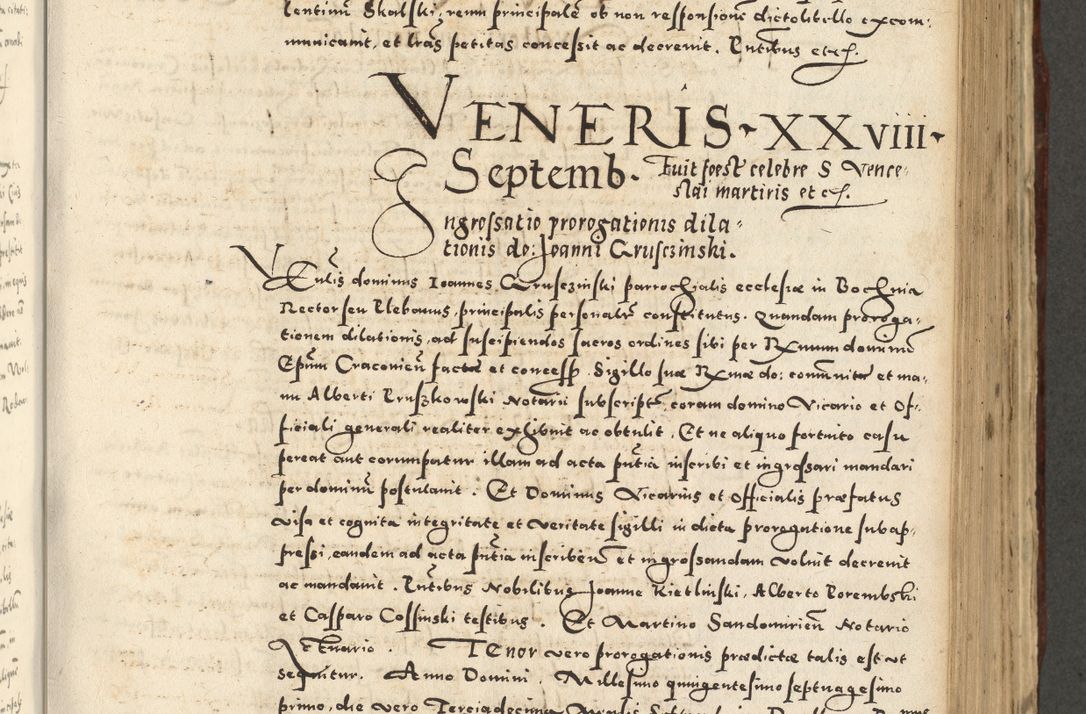 lentinũ Skalski, reum principalẽ ob non responsionẽ dicto libello excom:
municavit, et lrãs petitas concessit ac decrevit. Pntibus etc.
VENERIS XXviii
Septemb. Fuit foest celebre S Vence:
slai martiris etc.
Ingrossatio prorogationis dila:
tionis do: Joanni Grusczinski.
Venlis dominus Ioannes Grusczinski parrochialis ecclesiæ in Bochnia
Rector seu Plebanus, principalis personalr constitutus. Quandam proroga:
tionem dilationis, ad suscipiendos sacros ordines sibi per Rx̃mum dominũ
Epum Cracovieñ factæ et concess. Sigillo suæ Rx̃mæ do: comunitæ et ma:
nu Alberti Pruszkowski Notarii subscriptẽ, coram domino Vicario et Of:
ficiali generali realiter exhibuit ac obtulit. Et ne aliquo fortuito casu
pereat aut corumpatur illam ad acta pñtia inscribi et ingrossari mandari
per dominũ postulavit. Et Dominus Vicarius et Officialis præfatus
visa et cognita integritate et veritate sigilli in dicta prorogatione subap:
pressi, eandem ad acta pñtia inscribeñ et ingrossandam voluit decrevit
ac mandavit. Pñtibus Nobilibus Joanne Kietlinski, Alberto Porembski
et Casparo Cossinski testibus. Et Martino Sandomirieñ Notario
Actuario. Tenor vero prorogationis prædictæ talis est ut
sequitur. Anno Domini. Millesimo quingentesimo septuagesimo
primo, die vero Terciadecima Mensis